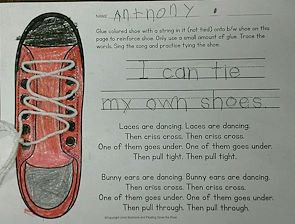 NAME: Anthony
Glue colored shoe with a string in it (not tied) onto b/w shoe on this
page to reinforce shoe. Only use a small amount of glue. Trace the
words. Sing the song and practice tying the shoe.
I can tie
my own shoes.
Laces are dancing. Laces are dancing.
Then criss cross. Then criss cross.
One of them goes under. One of them goes under.
Then pull tight. Then pull tight.
Bunny ears are dancing. Bunny ears are dancing.
Then criss cross. Then criss cross.
One of them goes under. One of them goes under.
Then pull through. Then pull through.